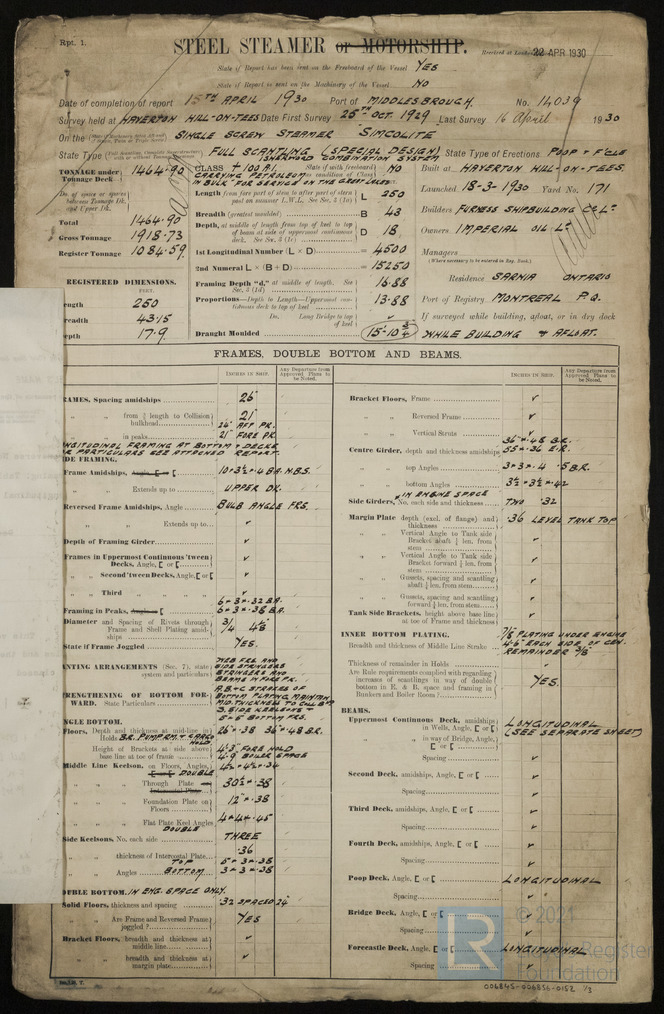 Rpt. 1.
STEEL STEAMER or MOTORSHIP.
Received at London 22 APR 1930
State if Report has been sent on the Freeboard of the Vessel YES
State if Report is sent on the Machinery of the Vessel NO
Date of completion of report 15TH APRIL 1930 Port of MIDDLESBROUGH. No. 14039
Survey held at HAVERTON HILL-ON-TEES Date First Survey 25TH OCT. 1929 Last Survey 16 April 1930
On the SINGLE SCREW STEAMER SIMCOLITE
State Type FULL SCANTLING (SPECIAL DESIGN) State Type of Erections POOP & F'CLE
ISHERWOOD COMBINATION SYSTEM
TONNAGE under Tonnage Deck 1464.90
CLASS +100 A1. State if with freeboard condition of Class NO
CARRYING PETROLEUM
IN BULK "FOR SERVICE ON THE GREAT LAKES"
Built at HAVERTON HILL-ON-TEES.
Launched 18-3-1930 Yard No. 171
Length from fore part of stem to after part of stern post on summer L.W.L. See Sec. 3 (1a) L 250
Do. of space or spaces between Tonnage Dk. and Upper Dk.
Breadth (greatest moulded) B 43
Builders FURNESS SHIPBUILDING Co Ld
Total 1464.90
Depth, at middle of length from top of keel to top of beam at side of uppermost continuous deck. See Sec. 3 (1c) D 18
Owners IMPERIAL OIL Ld
Gross Tonnage 1918.73
Register Tonnage 1084.59
1st Longitudinal Number (L × D) = 4500
Managers
(Where necessary to be entered in Reg. Book.)
2nd Numeral L × (B + D) = 15250
Residence SARNIA ONTARIO
REGISTERED DIMENSIONS.
FEET.
Framing Depth "d," at middle of length. See Sec. 3 (1d) 16.88
Port of Registry MONTREAL P.Q.
ength 250
Proportions—Depth to Length—Uppermost continuous deck to top of keel 13.88
If surveyed while building, afloat, or in dry dock
readth 43.15
Do. Long Bridge to top of keel
epth 17.9
Draught Moulded 15'-10 3/4"
WHILE BUILDING & AFLOAT.
FRAMES, DOUBLE BOTTOM AND BEAMS.
INCHES IN SHIP.
Any Departure from Approved Plans to be Noted.
RAMES, Spacing amidships 26"
" " from 3/5 length to Collision bulkhead 21"
" " in peaks 24" AFT PK.
21" FORE PK.
NGITUDINAL FRAMING AT BOTTOM & DECK
R PARTICULARS SEE ATTACHED REPORT.
DE FRAMING.
Frame Amidships, Angle, [ or [ 10×3½×.4 B.A. M.B.S.
" " Extends up to UPPER DK.
Reversed Frame Amidships, Angle BULB ANGLE FRS.
" " Extends up to ✓
Depth of Framing Girder ✓
Frames in Uppermost Continuous 'tween Decks, Angle, [ or [ ✓
" " Second 'tween Decks, Angle, [ or [ ✓
" " Third " " " ✓
Framing in Peaks, Angle or [ 6×3×.32 B.A.
6×3×.38 B.A.
Diameter and Spacing of Rivets through Frame and Shell Plating amidships 3/4 4½
State if Frame Joggled YES.
ANTING ARRANGEMENTS (Sec. 7), state system and particulars WEB FRS AND
SIDE STRINGERS
STRINGERS AND
BEAMS IN FORE PK.
RENGTHENING OF BOTTOM FORWARD. State Particulars A B & C STRAKES OF
BOTTOM PLATING MAINTAIN
MID. THICKNESS TO COLL BD
NGLE BOTTOM.
Floors, Depth and thickness at mid-line in Holds BR. PUMP RM. & CARGO HOLD 26×.38 36×.48 BR.
Height of Brackets at side above base line at toe of frame 4'-3" FORE HOLD
4'-9" BOILER SPACE
Middle Line Keelson, on Floors, Angles, [ or [ DOUBLE 4½×4½×.34
" " Through Plate or Intercostal Plate 30½×.38
" " Foundation Plate on Floors 12"×.38
" " Flat Plate Keel Angles DOUBLE 4×4×.45
Side Keelsons, No. each side THREE
" " thickness of Intercostal Plate .36
" " Angles TOP 5×3×.38
BOTTOM 3×3×.38
OUBLE BOTTOM. IN ENG. SPACE ONLY.
Solid Floors, thickness and spacing .32 SPACED 24"
" Are Frame and Reversed Frame joggled? YES
Bracket Floors, breadth and thickness at middle line ✓
" " breadth and thickness at margin plate ✓
INCHES IN SHIP.
Any Departure from Approved Plans to be Noted.
Bracket Floors, Frame ✓
" " Reversed Frame ✓
" " Vertical Struts ✓
Centre Girder, depth and thickness amidships 36"×.48 B.R.
55×.36 E.R.
" " top Angles 3×3×.4 .5 B.R.
" " bottom Angles 3½×3½×.42
Side Girders, No. each side and thickness IN ENGINE SPACE TWO .32
Margin Plate depth (excl. of flange) and thickness .36 LEVEL TANK TOP
" " Vertical Angle to Tank side Bracket abaft ¼ len. from stem ✓
" " Vertical Angle to Tank side Bracket forward ¼ len. from stem ✓
" " Gussets, spacing and scantling abaft ¼ len. from stem ✓
" " Gussets, spacing and scantling forward ¼ len. from stem ✓
Tank Side Brackets, height above base line at toe of Frame and thickness ✓
INNER BOTTOM PLATING.
Breadth and thickness of Middle Line Strake 7/8 PLATING UNDER ENGINE
4'-6" EACH SIDE OF CEN.
Thickness of remainder in Holds ✓
Are Rule requirements complied with regarding increases of scantlings in way of double bottom in E. & B. space and framing in Bunkers and Boiler Room? YES.
BEAMS.
Uppermost Continuous Deck, amidships in Wells, Angle, [ or [ LONGITUDINAL
(SEE SEPARATE SHEET)
" " in way of Bridge, Angle, [ or [
Spacing ✓
Second Deck, amidships, Angle, [ or [ ✓
Spacing ✓
Third Deck, amidships, Angle, [ or [ ✓
Spacing ✓
Fourth Deck, amidships, Angle, [ or [ ✓
Spacing ✓
Poop Deck, Angle, [ or [ LONGITUDINAL
Spacing ✓
Bridge Deck, Angle, [ or [
Spacing
Forecastle Deck, Angle, [ or [ LONGITUDINAL
Spacing ✓
© 2021
LR
Lloyd's Register
Foundation
006845-006856-0152 1/3